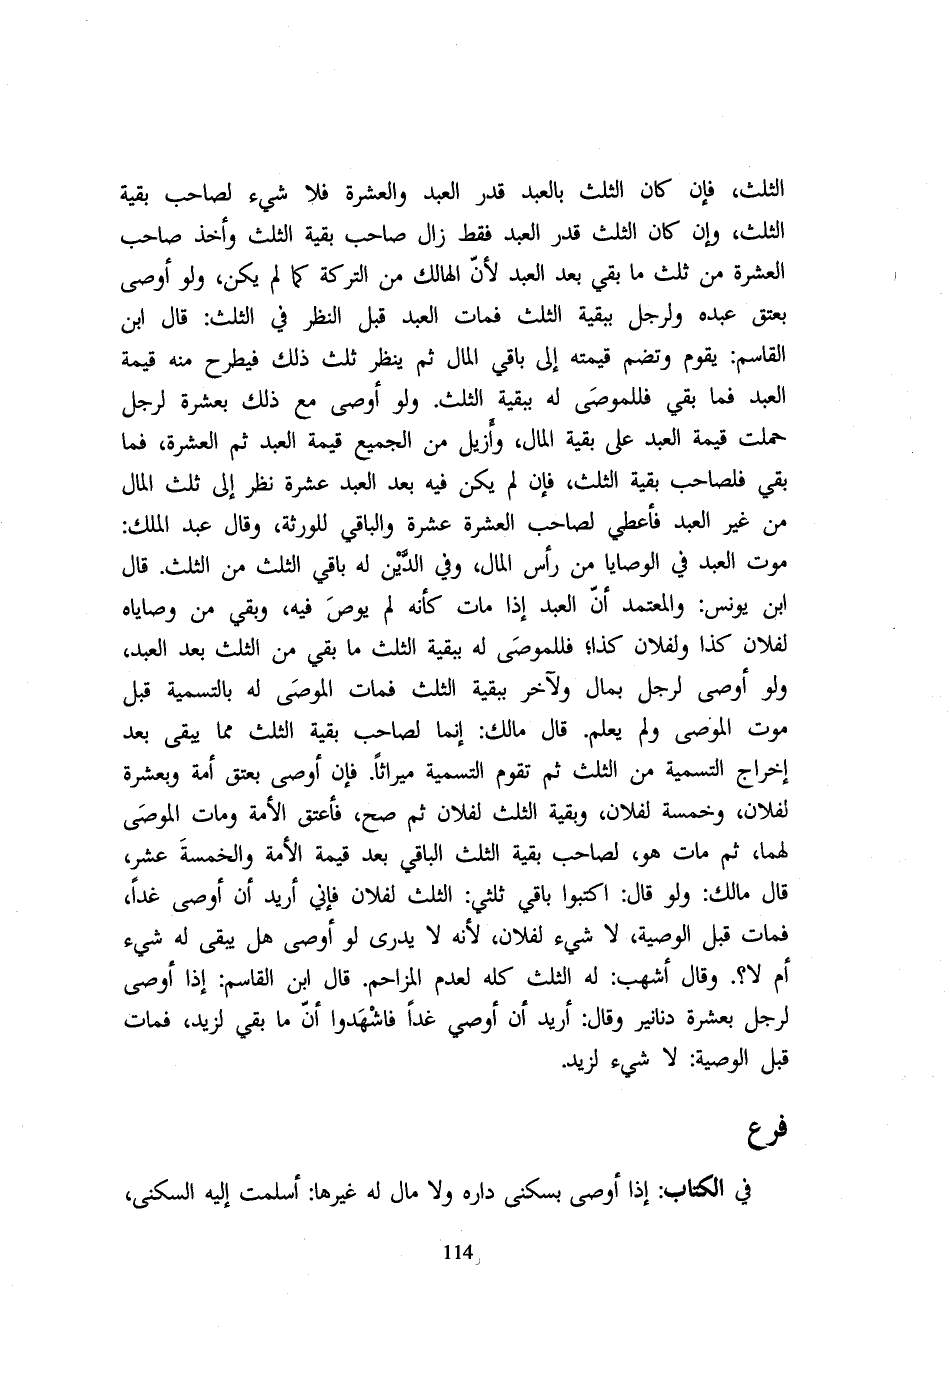 الثلث، فإن كان الثلث بالعبد قدر العبد والعشرة فلا شيء لصاحب بقية
الثلث، وإن كان الثلث قدر العبد فقط زال صاحب بقية الثلث وأخذ صاحب
العشرة من ثلث ما بقي بعد العبد لأنّ الهالك من التركة كما لم يكن، ولو أوصى
بعتق عبده ولرجل ببقية الثلث فمات العبد قبل النظر في الثلث: قال ابن
القاسم: يقوم وتضم قيمته إلى باقي المال ثم ينظر ثلث ذلك فيطرح منه قيمة
العبد فما بقي فللموصَى له ببقية الثلث. ولو أوصى مع ذلك بعشرة لرجل
حملت قيمة العبد على بقية المال، وأُزيل من الجميع قيمة العبد ثم العشرة، فما
بقي فلصاحب بقية الثلث، فإن لم يكن فيه بعد العبد عشرة نظر إلى ثلث المال
من غير العبد فأعطي لصاحب العشرة عشرة والباقي للورثة، وقال عبد الملك:
موت العبد في الوصايا من رأس المال، وفي الدَّيْن له باقي الثلث من الثلث. قال
ابن يونس: والمعتمد أنّ العبد إذا مات كأنه لم يوصَ فيه، وبقي من وصاياه
لفلان كذا ولفلان كذا؛ فللموصَى له ببقية الثلث ما بقي من الثلث بعد العبد،
ولو أوصى لرجل بمال ولآخر ببقية الثلث فمات الموصَى له بالتسمية قبل
موت الموصى ولم يعلم. قال مالك: إنما لصاحب بقية الثلث مما يبقى بعد
إخراج التسمية من الثلث ثم تقوم التسمية ميراثاً. فإن أوصى بعتق أمة وبعشرة
لفلان، وخمسة لفلان، وبقية الثلث لفلان ثم صح، فأعتق الأمة ومات الموصَى
لهما، ثم مات هو، لصاحب بقية الثلث الباقي بعد قيمة الأمة والخمسةَ عشر،
قال مالك: ولو قال: اكتبوا باقي ثلثي: الثلث لفلان فإني أريد أن أوصى غداً،
فمات قبل الوصية، لا شيء لفلان، لأنه لا يدرى لو أوصى هل يبقى له شيء
أم لا؟. وقال أشهب: له الثلث كله لعدم المزاحم. قال ابن القاسم: إذا أوصى
لرجل بعشرة دنانير وقال: أريد أن أوصي غداً فاشْهَدوا أنّ ما بقي لزيد، فمات
قبل الوصية: لا شيء لزيد.
فرع
في الكتاب: إذا أوصى بسكنى داره ولا مال له غيرها: أسلمت إليه السكنى،
114